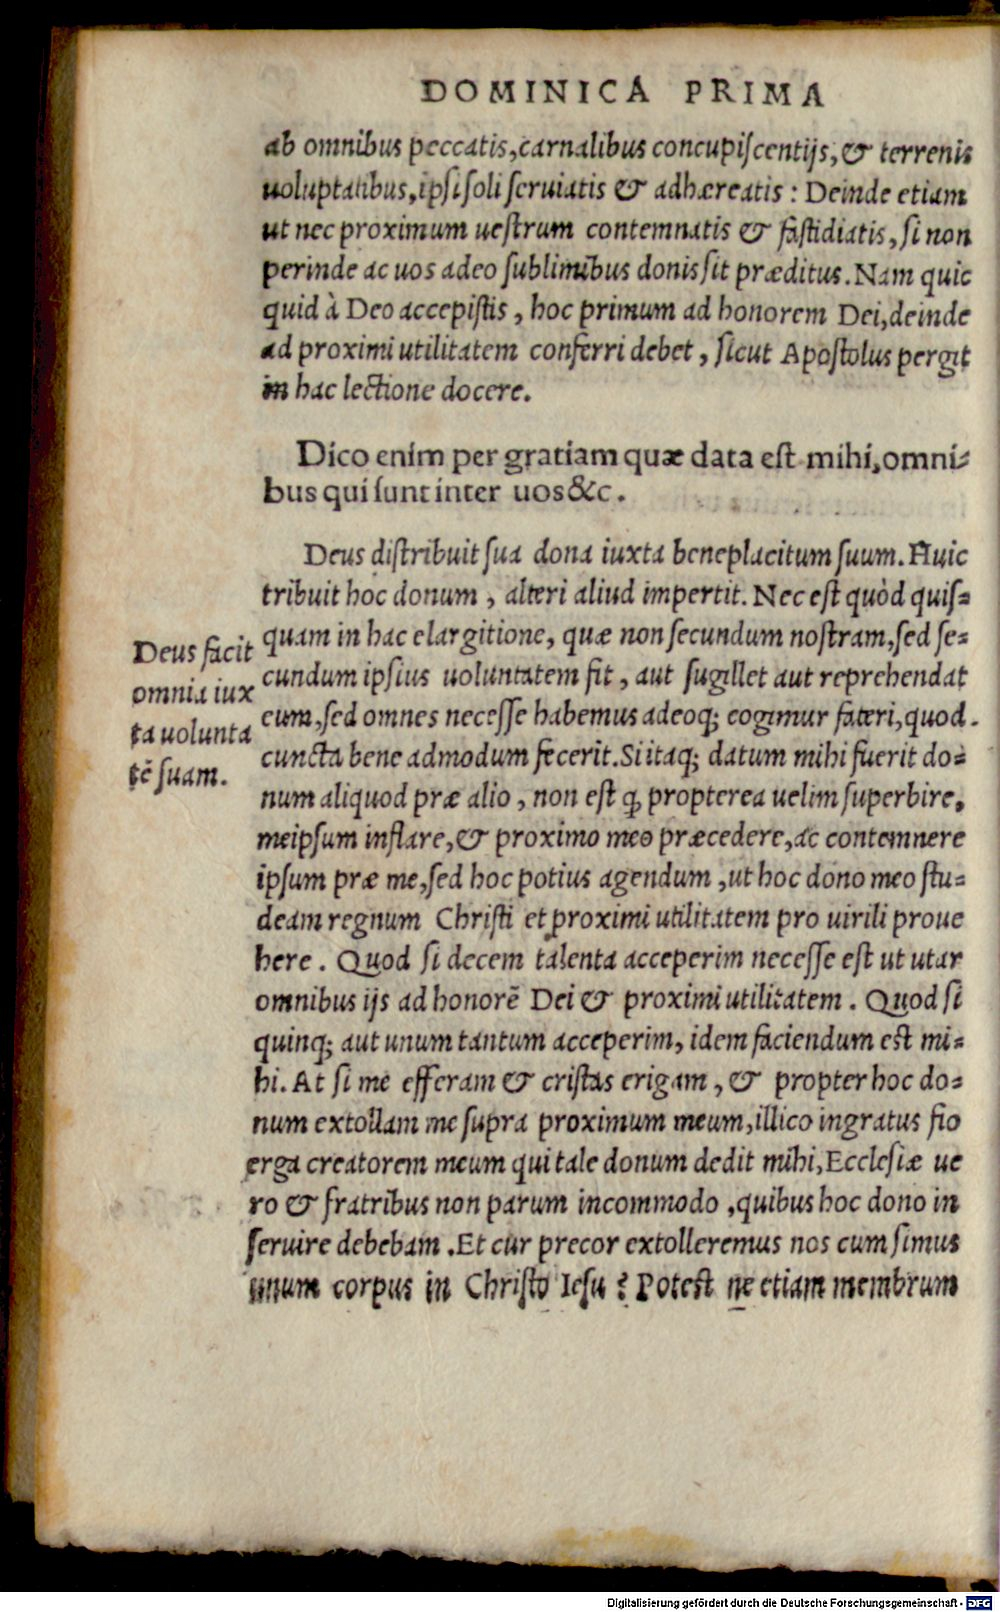 DOMINICA PRIMA
ab omnibus peccatis, carnalibus concupiſcentijs, & terrenis
uoluptatibus, ipſi ſoli ſeruiatis & adhæreatis: Deinde etiam
ut nec proximum ueſtrum contemnatis & faſtidiatis, ſi non
perinde ac uos adeo ſublimibus donis ſit præditus. Nam quic
quid à Deo accepiſtis, hoc primum ad honorem Dei, deinde
ad proximi utilitatem conferri debet, ſicut Apoſtolus pergit
in hac lectione docere.
Dico enim per gratiam quæ data eſt mihi, omni-
bus qui ſunt inter uos &c.
Deus diſtribuit ſua dona iuxta beneplacitum ſuum. Huic
tribuit hoc donum, alteri aliud impertit. Nec eſt quòd quiſ=
quam in hac elargitione, quæ non ſecundum noſtram, ſed ſe=
cundum ipſius uoluntatem fit, aut ſugillet aut reprehendat
eum, ſed omnes neceſſe habemus adeoq; cogimur fateri, quod
cuncta bene admodum fecerit. Si itaq; datum mihi fuerit do=
num aliquod præ alio, non eſt ꝙ propterea uelim ſuperbire,
meipſum inflare, & proximo meo præcedere, ac contemnere
ipſum præ me, ſed hoc potius agendum, ut hoc dono meo ſtu=
deam regnum Chriſti et proximi utilitatem pro uirili proue
here. Quod ſi decem talenta acceperim neceſſe eſt ut utar
omnibus ijs ad honorē Dei & proximi utilitatem. Quod ſi
quinq; aut unum tantum acceperim, idem faciendum eſt mi=
hi. At ſi me efferam & criſtas erigam, & propter hoc do=
num extollam me ſupra proximum meum, illico ingratus fio
erga creatorem meum qui tale donum dedit mihi, Eccleſiæ ue
ro & fratribus non parum incommodo, quibus hoc dono in
ſeruire debebam. Et cur precor extolleremus nos cum ſimus
unum corpus in Chriſto Ieſu? Poteſt ne etiam membrum
Deus facit
omnia iux
ta uolunta
tē ſuam.
Digitalisierung gefördert durch die Deutsche Forschungsgemeinschaft - DFG